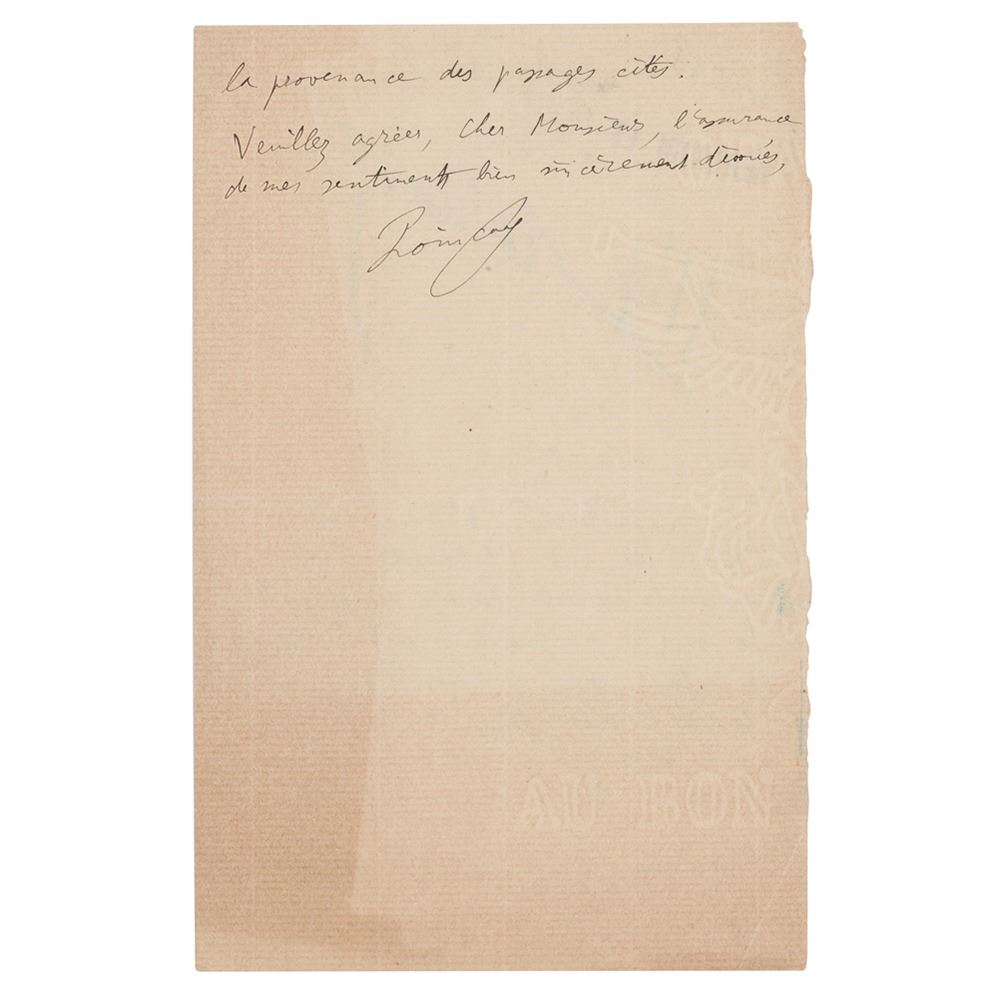 la provenance des passages cités.
Veuillez agréer, cher Monsieur, l'assurance
de mes sentiments bien sincèrement dévoués,
Poincaré
AU BON